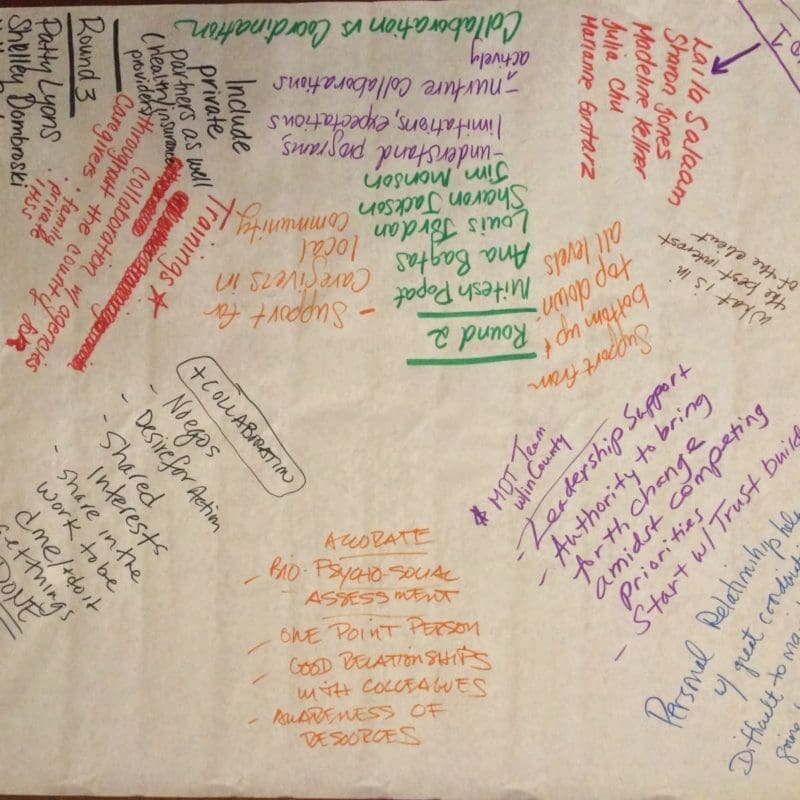 Laila Salaam
Sharon Jones
Madeline Kellner
Julia Chu
Marianne Gontarz
What is in
the best interest
of the client
Collaboration vs Coordination
- nurture collaborations
actively
- understand programs,
limitations, expectations
Round 2
Nitesh Popat
Ana Bagtas
Louis Jordan
Sharon Jackson
Jim Monson
Support from
bottom up &
top down
all levels
- Support for
Caregivers in
local
community
Include
private
partners as well
(health/insurance
providers)
Round 3
Patty Lyons
Shelley Dombroski
Trainings ★
Collaboration w/ agencies
throughout the county for
Caregivers · family
· private
· IHSS
+ COLLABORATION
- No egos
- Desire for Action
- Shared
Interests
- share in the
work to be
done/to do it
get things
DONE
ACCURATE
- BIO-PSYCHO-SOCIAL
ASSESSMENT
- ONE POINT PERSON
- GOOD RELATIONSHIPS
WITH COLLEAGUES
- AWARENESS OF
RESOURCES
* MDT Team
w/in County
- Leadership Support
- Authority to bring
forth change
amidst competing
priorities
- Start w/ Trust build
Personal Relationship
w/ great
Difficult to